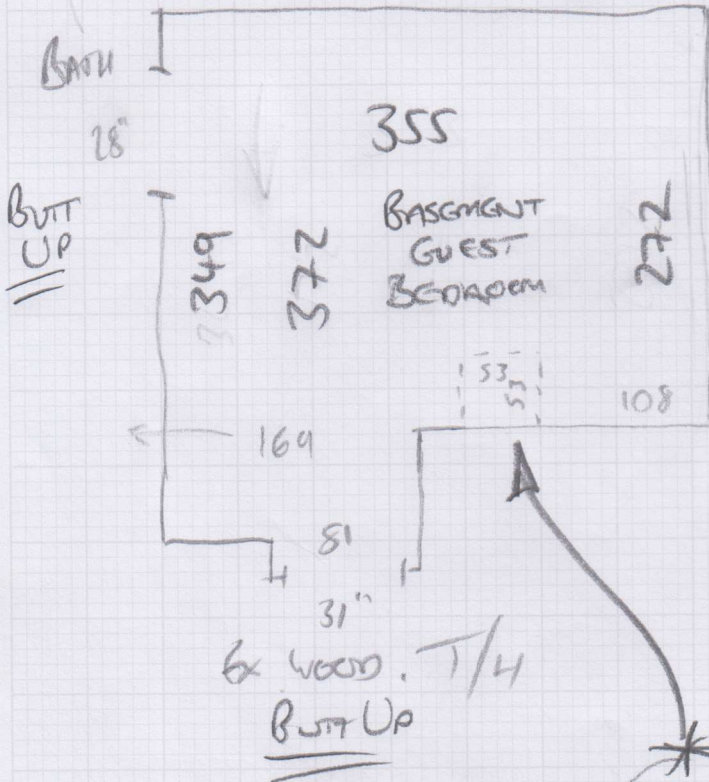 BATH
28"
355
BUTT
UP
349
372
BASEMENT
GUEST
BEDROOM
272
53
53
108
169
81
31"
Ex WOOD. T/H
BUTT UP